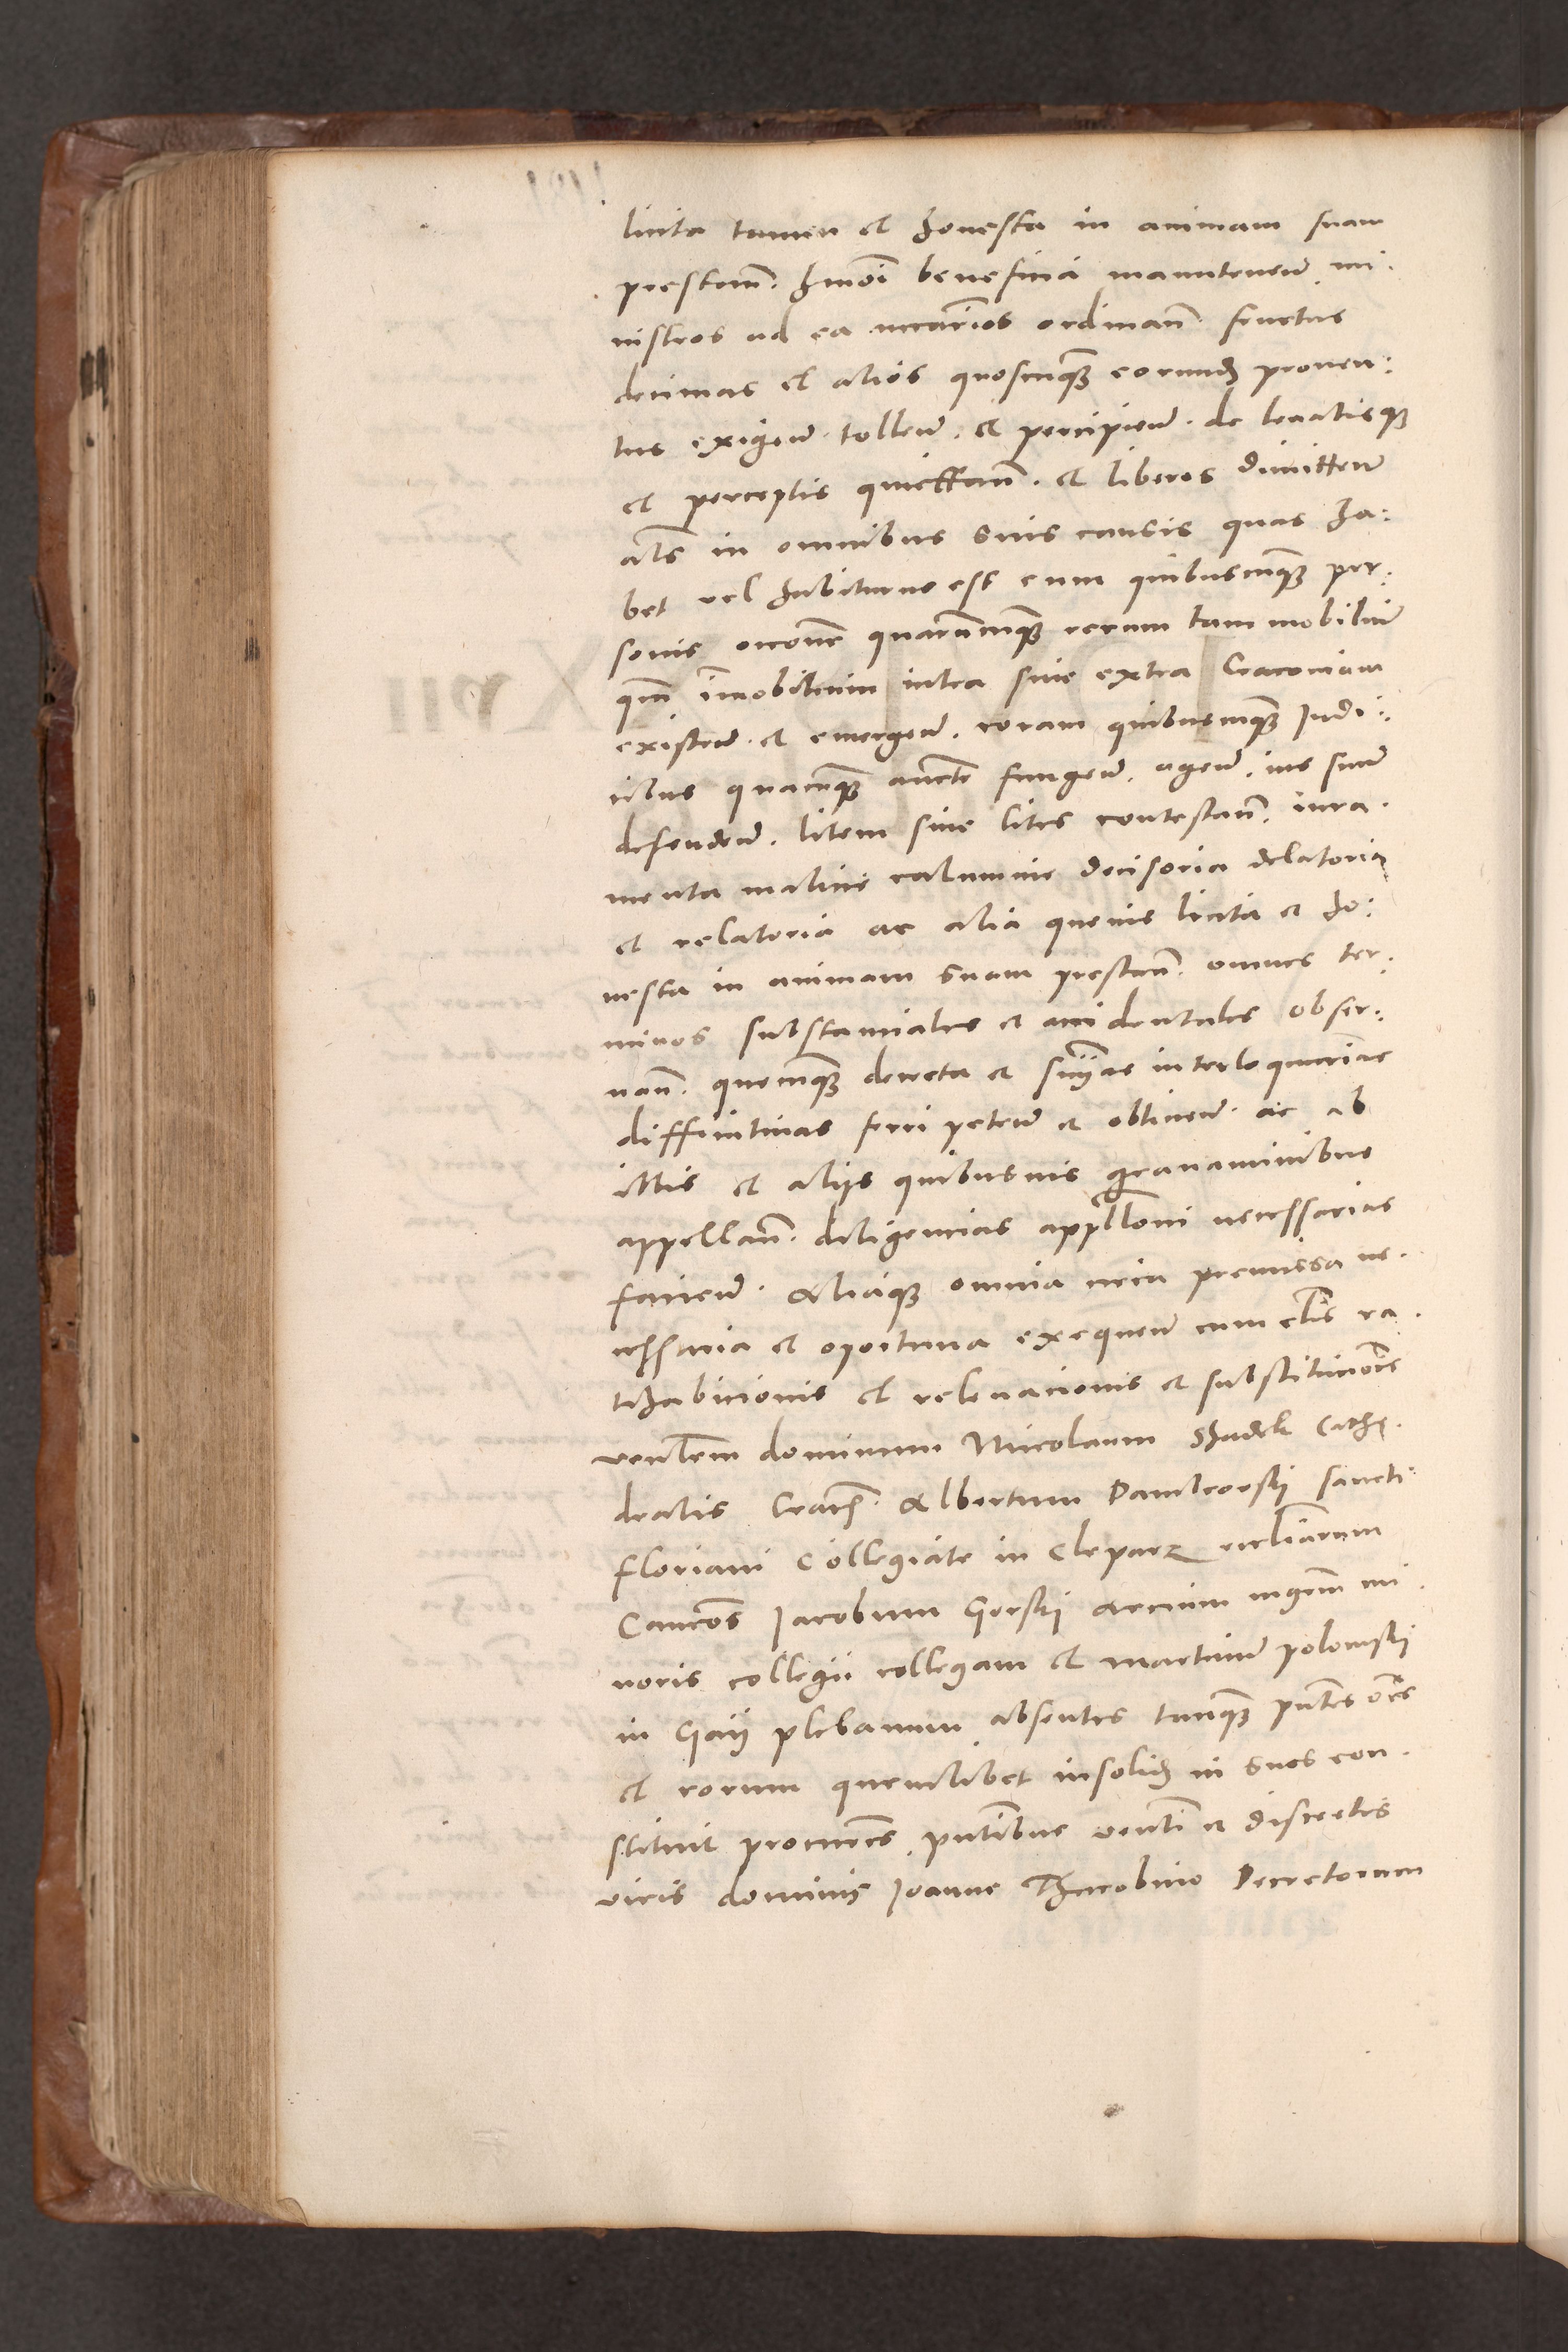 licita tamen et honesta in animam suam
prestan͞. hm͞oi beneficia manutenen͞. mi:
nistros ad ea nec͞arios ordinan͞. fructus
decimas et alios quoscunq͛ eorund͛ proven:
tus exigen͞. tollen͞. et percipien͞. de levatisq͛
et perceptis quiettan͞. et liberos dimitten͞
ac͞ts in omnibus suis causis quas ha:
bet vel habiturus est cum quibuscunq͛ per:
sonis occ͞one quarumcunq͛ rerum tam mobiliu͞
qm͞ i͞mobilium intra sive extra Cracoviam
existen͞. et emergen͞. coram quibuscunq͛ Judi:
cibus quacunq͛ auct͞te fungen͞. agen͞. ius suu͞
defenden͞. litem sive lites contestan͞. iura.
menta malicie calumnie decisoria delatoria
et relatoria ac alia quevis licita et ho:
nesta in animam suam prestan͞. omnes ter:
minos substanciales et accidentales obser:
van͞. quecunq͛ decreta et sn͞ias interloquutorias
diffinitivas ferri peten͞ et obtinen͞. ac ab
illis et alijs quibusvis gravaminibus
appellan͞. diligencias app͞lloni necessarias
facien͞. aliaq͛ omnia circa premissa ne.
cessaria et oportuna exequen͞ cum cl͞lis ra.
tihabicionis et relevacionis et substitucio͞is
ven͞lem dominum Nicolaum Shadek Cathe.
dralis Crac͞. Albertum Dambrowski sancti
Floriani Collegiate in Cleparz eccliarum
Cano͞cos Jacobum Gorski Arcium mgr͞m mi.
noris collegii collegam et Martinu͞ polomski
in Gaij plebanum absentes tanq͛ pn͞tes om͞es
et eorum quemlibet insolid͛ in suos con.
stituit procur͞es. pn͞tibus ven͞li et discretis
viris dominis Joanne Thacobino Decretorum